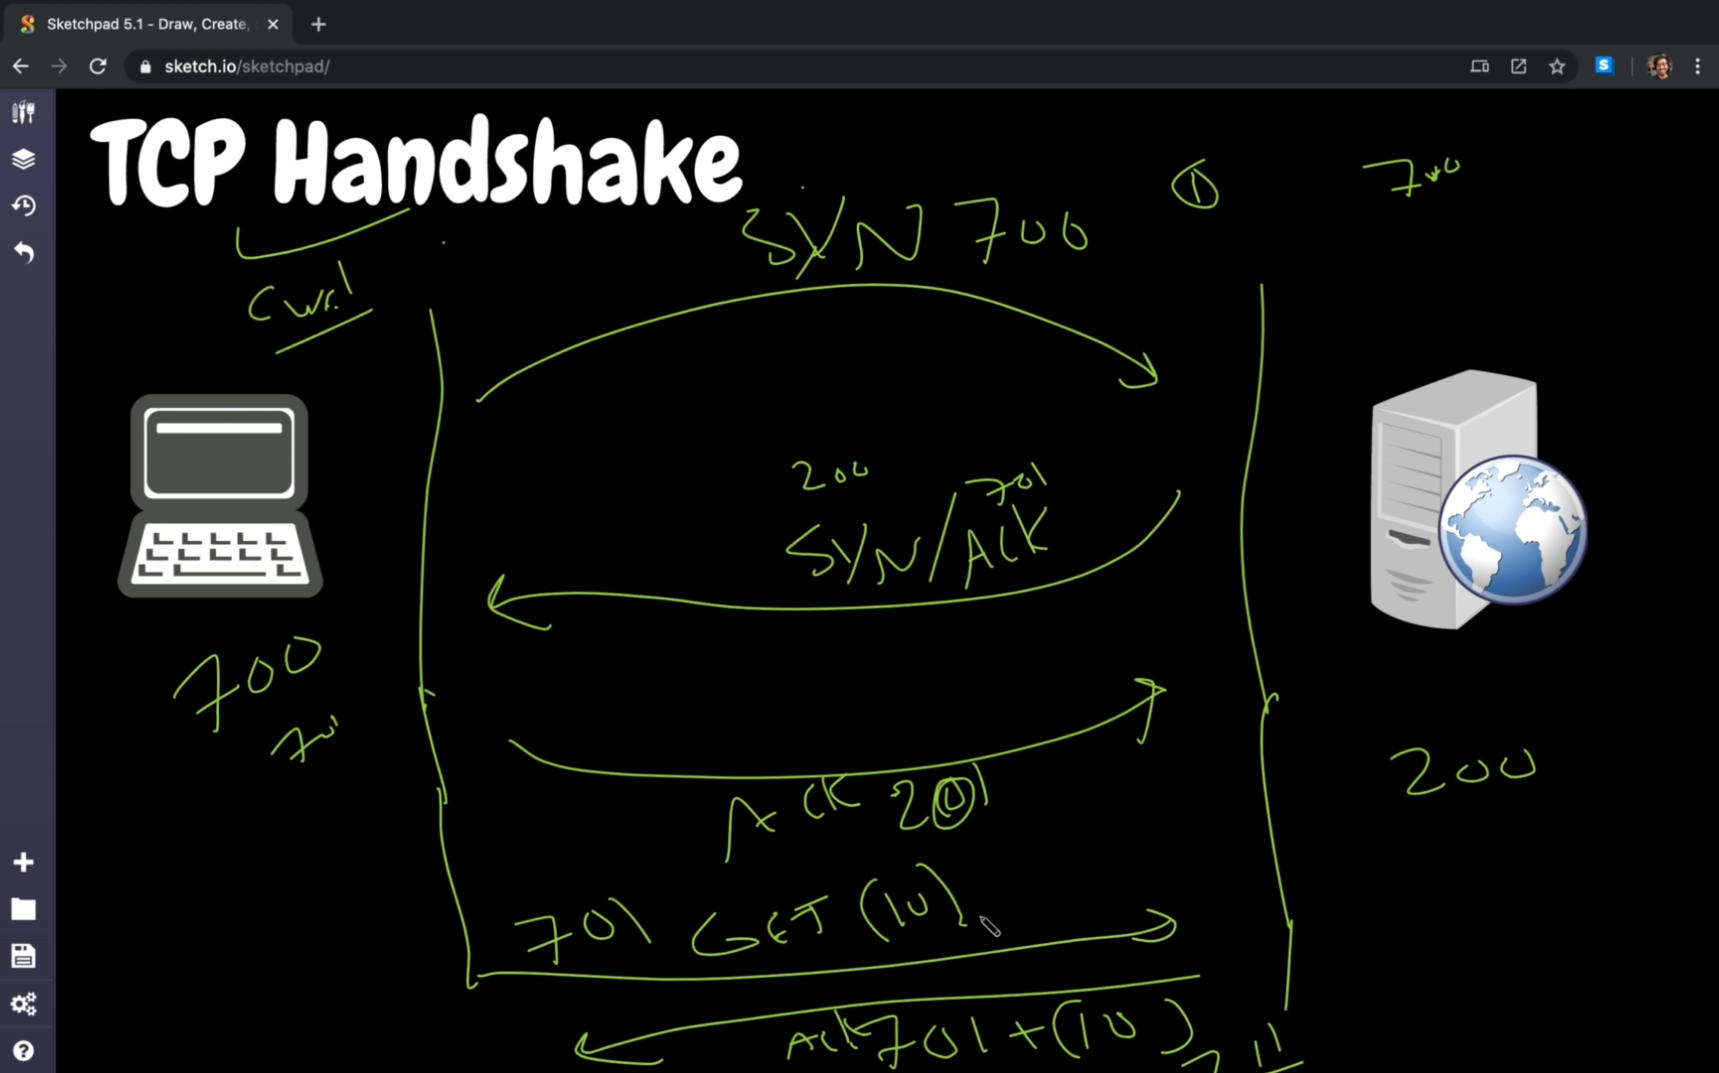 Sketchpad 5.1 - Draw, Create,
sketch.io/sketchpad/
S
TCP Handshake
① 700
SYN 700
200 701
SYN/ACK
700
701
200
ACK 201
701 GET (10)
ACK 701+(10)
711